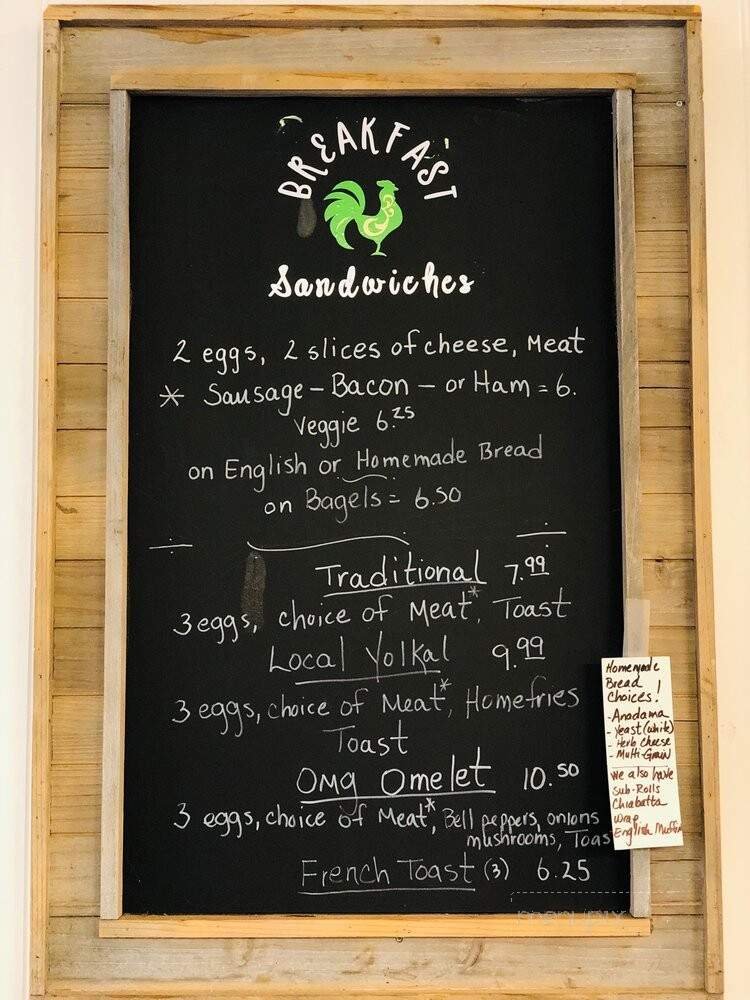 BREAKFAST
Sandwiches
2 eggs, 2 slices of cheese, Meat
* Sausage - Bacon - or Ham = 6.
Veggie 6.25
on English or Homemade Bread
on Bagels = 6.50
Traditional 7.99
3 eggs, choice of Meat*, Toast
Local Yolkal 9.99
3 eggs, choice of Meat*, Homefries
Toast
OMG Omelet 10.50
3 eggs, choice of Meat*, Bell peppers, onions
mushrooms, Toas
French Toast (3) 6.25
Homemade
Bread
Choices!
- Anadama
- Yeast (white)
- Herb Cheese
- Multi-Grain
we also have
Sub-Rolls
Chiabatta
wrap
English Muffin